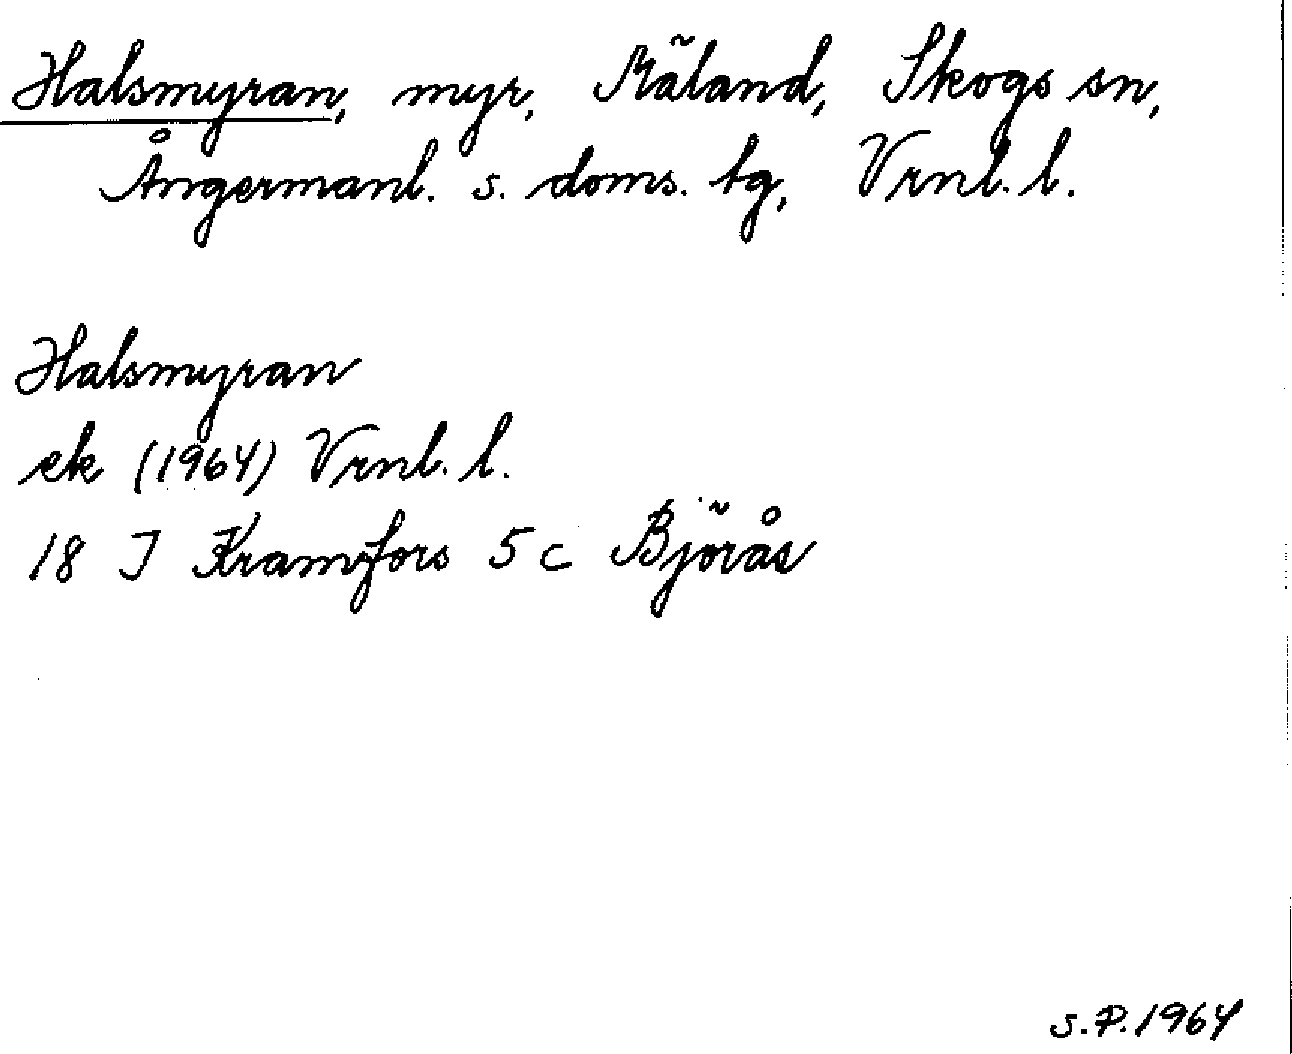 Halsmyran, myr, Mäland, Skogs sn,
Ångermanl. s. doms. tg, Vrnl. l.
Halsmyran
ek (1964) Vrnl. l.
18 I Kramfors 5 c Björås
S.P. 1964